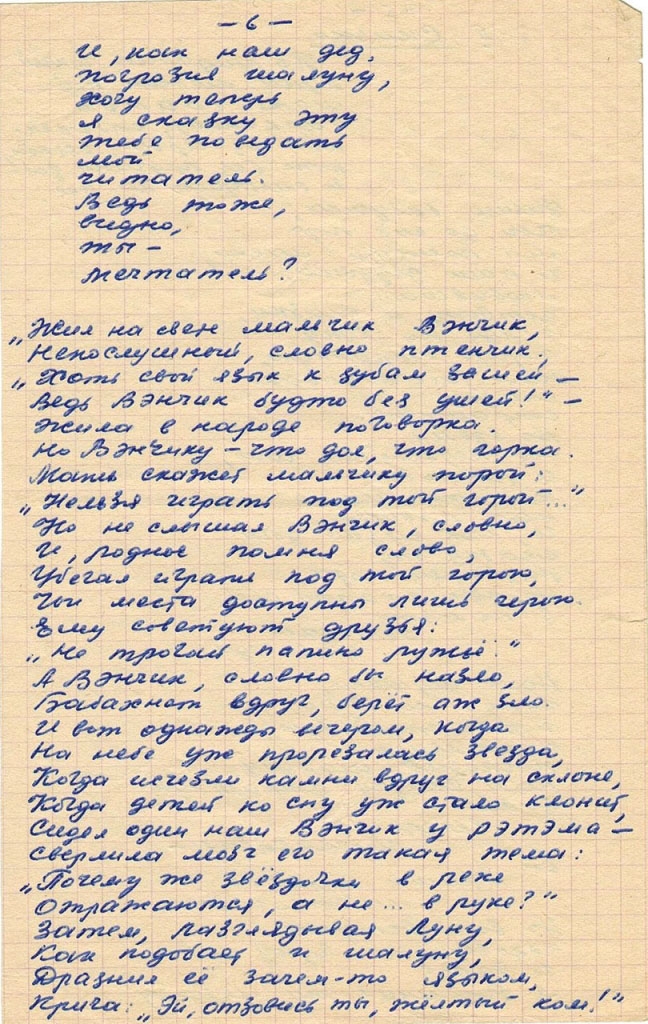 — 6 —
И, как наш дед,
погрозил шалуну,
хочу теперь
я сказку эту
тебе поведать
мой
читатель.
Ведь тоже,
видно,
ты —
мечтатель?
„Жил на свете мальчик Вэнчик,
Непослушный, словно птенчик.
„Хоть свой язык к зубам зашей —
Ведь Вэнчик будто без ушей!" —
Жила в народе поговорка.
Но Вэнчику — что дол, что горка.
Мать скажет мальчику порой:
„Нельзя играть под той горой..."
Но не слышал Вэнчик, словно,
И, родное помня слово,
Убегал играть под той горою,
Чьи места доступны лишь герою.
Ему советуют друзья:
„Не трогай папино ружьё."
А Вэнчик, словно бы назло,
Бабахнет вдруг, берёт аж зло.
И вот однажды вечером, когда
На небе уж прорезалась звезда,
Когда исчезли камни вдруг на склоне,
Когда детей ко сну уж стало клонит,
Сидел один наш Вэнчик у рэтэма —
Сверлила мозг его такая тема:
„Почему же звёздочки в реке
Отражаются, а не... в руке?"
Затем, разглядывая Луну,
Как подобает и шалуну,
Дразнил её зачем-то языком,
Крича: „Эй, отзовись ты, жёлтый ком!"